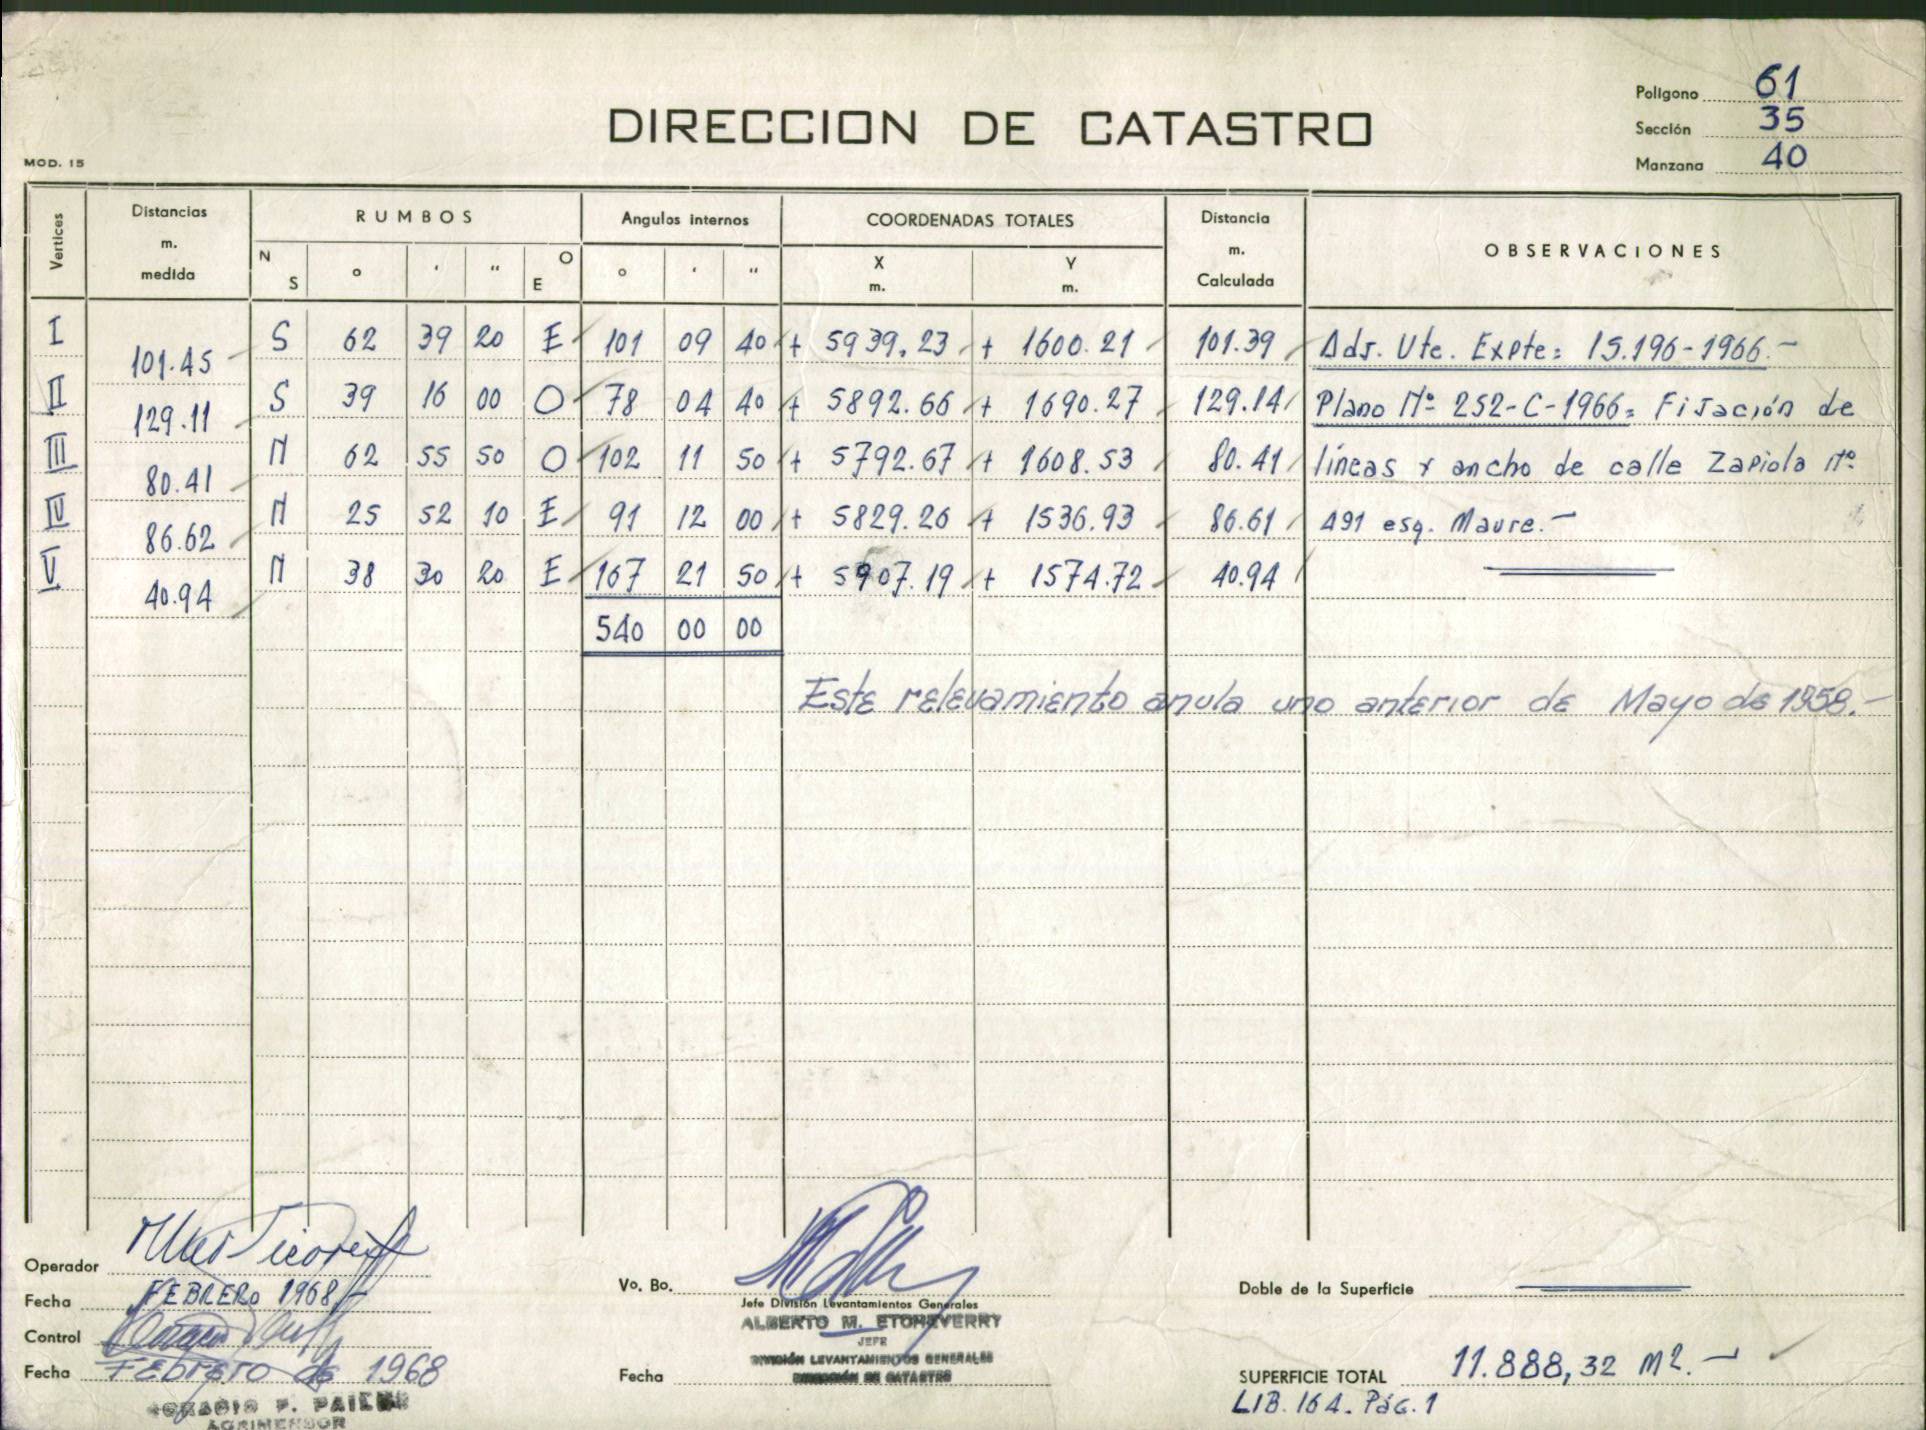 Polígono 61
DIRECCION DE CATASTRO
Sección 35
MOD. 15
Manzana 40
Vertices
Distancias m. medida
RUMBOS
Angulos internos
COORDENADAS TOTALES
Distancia m. Calculada
OBSERVACIONES
N S ° ' " O E
° ' "
X m.
Y m.
I S 62 39 20 E 101 09 40 + 5939.23 + 1600.21 101.39 Adj. Ute. Expte: 15.196-1966.-
101.45
II S 39 16 00 O 78 04 40 + 5892.66 + 1690.27 129.14 Plano Nº 252-C-1966: Fijación de
129.11
III N 62 55 50 O 102 11 50 + 5792.67 + 1608.53 80.41 líneas y ancho de calle Zapiola Nº
80.41
IV N 25 52 10 E 91 12 00 + 5829.26 + 1536.93 86.61 491 esq. Maure.-
86.62
V N 38 30 20 E 167 21 50 + 5907.19 + 1574.72 40.94
40.94
540 00 00
Este relevamiento anula uno anterior de Mayo de 1958.-
Operador
Fecha FEBRERO 1968.-
Control
Fecha Febrero de 1968
AGRIMENSOR
Vo. Bo.
Jefe División Levantamientos Generales
ALBERTO M. ETCHEVERRY
JEFE
DIVISIÓN LEVANTAMIENTOS GENERALES
DIRECCIÓN DE CATASTRO
Fecha
Doble de la Superficie
SUPERFICIE TOTAL 11.888,32 M2.-
LIB. 164. Pág. 1